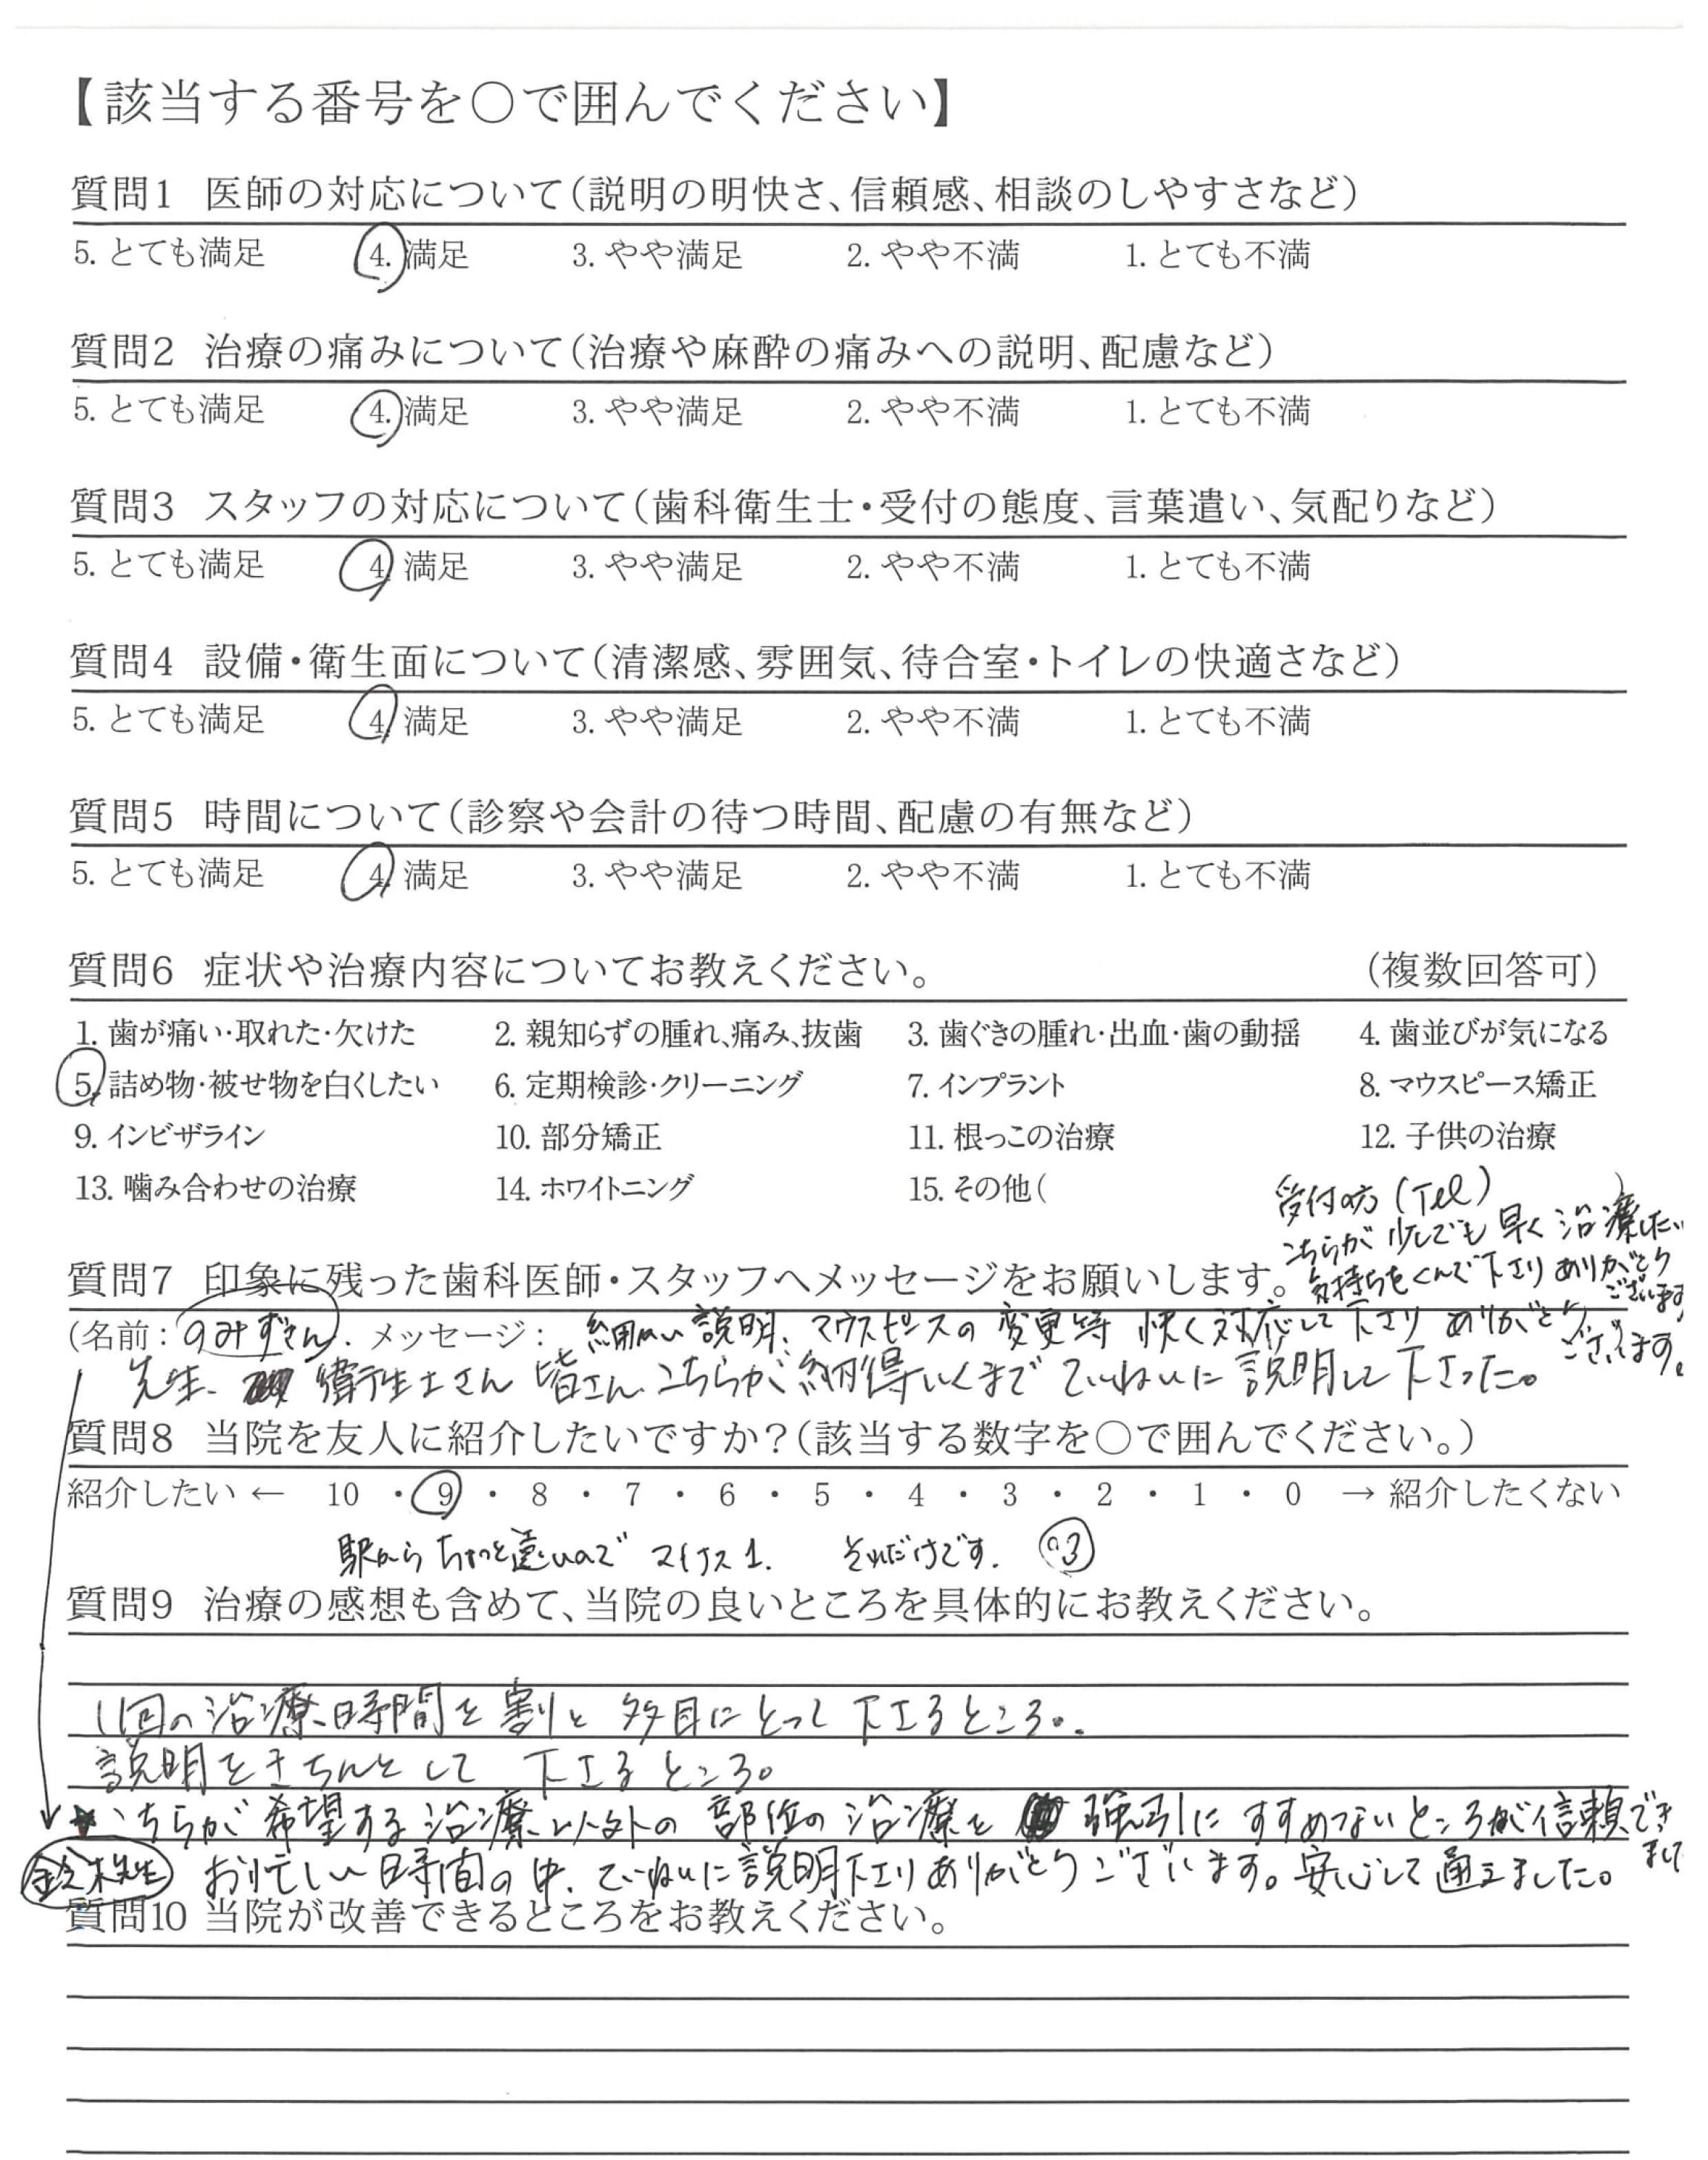 【該当する番号を〇で囲んでください】
質問1 医師の対応について(説明の明快さ、信頼感、相談のしやすさなど)
5. とても満足 4. 満足 3. やや満足 2. やや不満 1. とても不満
質問2 治療の痛みについて(治療や麻酔の痛みへの説明、配慮など)
5. とても満足 4. 満足 3. やや満足 2. やや不満 1. とても不満
質問3 スタッフの対応について(歯科衛生士・受付の態度、言葉遣い、気配りなど)
5. とても満足 4. 満足 3. やや満足 2. やや不満 1. とても不満
質問4 設備・衛生面について(清潔感、雰囲気、待合室・トイレの快適さなど)
5. とても満足 4. 満足 3. やや満足 2. やや不満 1. とても不満
質問5 時間について(診察や会計の待つ時間、配慮の有無など)
5. とても満足 4. 満足 3. やや満足 2. やや不満 1. とても不満
質問6 症状や治療内容についてお教えください。 (複数回答可)
1. 歯が痛い・取れた・欠けた 2. 親知らずの腫れ、痛み、抜歯 3. 歯ぐきの腫れ・出血・歯の動揺 4. 歯並びが気になる
5. 詰め物・被せ物を白くしたい 6. 定期検診・クリーニング 7. インプラント 8. マウスピース矯正
9. インビザライン 10. 部分矯正 11. 根っこの治療 12. 子供の治療
13. 噛み合わせの治療 14. ホワイトニング 15. その他( )
受付の方(Tel)
こちらが少しでも早く治療したい
気持ちをくんで下さりありがとう
ございます
質問7 印象に残った歯科医師・スタッフへメッセージをお願いします。
(名前: のみずさん. メッセージ: 細かい説明、マウスピースの変更等 快く対応して下さり ありがとう
ございます。
先生、衛生士さん 皆さん、こちらが納得いくまで ていねいに説明して下さった。
質問8 当院を友人に紹介したいですか?(該当する数字を〇で囲んでください。)
紹介したい ← 10 ・ 9 ・ 8 ・ 7 ・ 6 ・ 5 ・ 4 ・ 3 ・ 2 ・ 1 ・ 0 → 紹介したくない
駅からちょっと遠いので マイナス1. それだけです.
質問9 治療の感想も含めて、当院の良いところを具体的にお教えください。
1回の治療時間を割と多目にとって下さるところ。
説明をきちんとして下さるところ。
こちらが希望する治療以外の部位の治療を強引にすすめないところが信頼でき
まし
鈴木先生 お忙しい時間の中、ていねいに説明下さりありがとうございます。安心して通えました。
質問10 当院が改善できるところをお教えください。